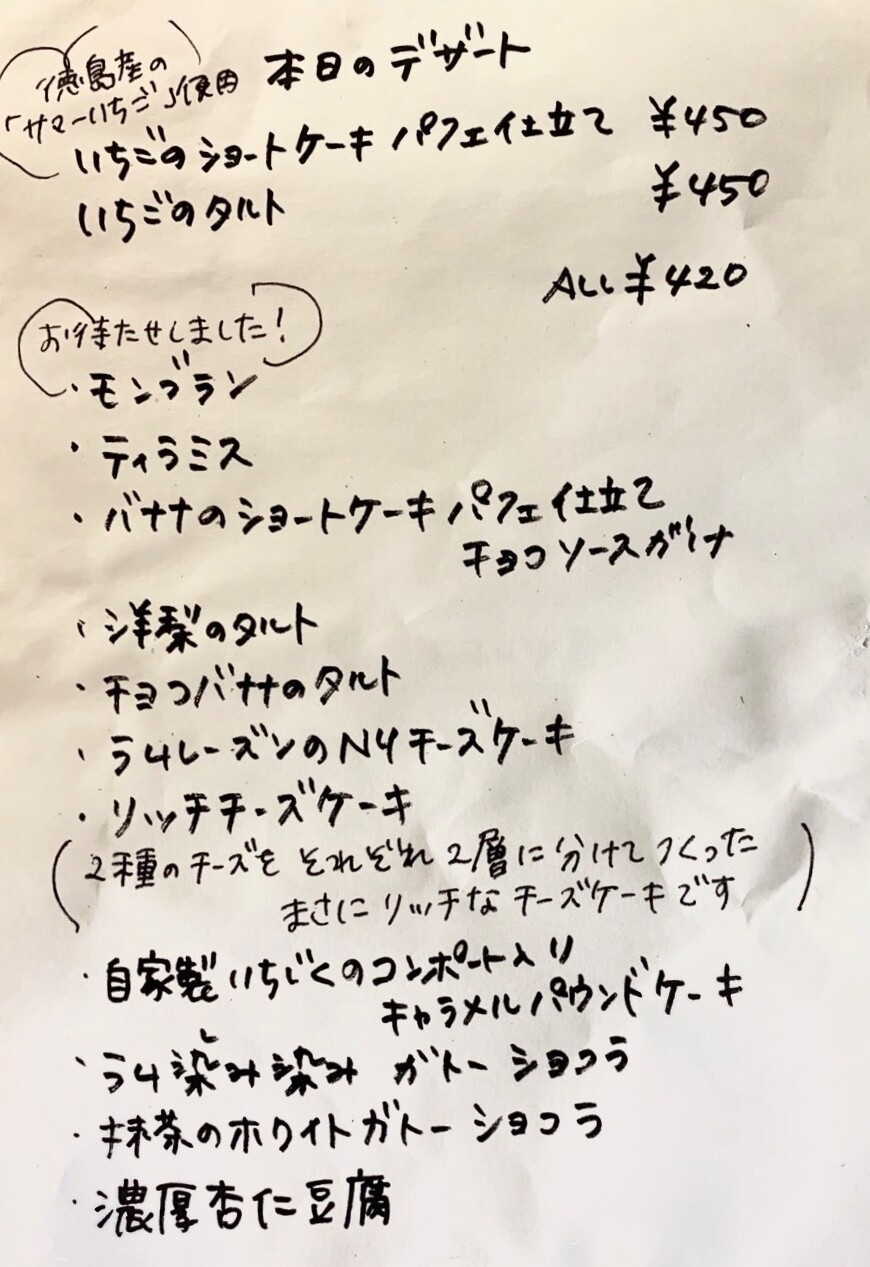 徳島産の
「サマーいちご」使用
本日のデザート
いちごのショートケーキ パフェ仕立て ¥450
いちごのタルト ¥450
ALL ¥420
お待たせしました!
・モンブラン
・ティラミス
・バナナのショートケーキ パフェ仕立て
チョコソースがけ
・洋梨のタルト
・チョコバナナのタルト
・ラムレーズンのNYチーズケーキ
・リッチチーズケーキ
(2種のチーズを それぞれ 2層に分けて つくった
まさに リッチな チーズケーキです)
・自家製いちじくのコンポート入り
キャラメルパウンドケーキ
・ラム染み染み ガトーショコラ
・抹茶のホワイトガトーショコラ
・濃厚杏仁豆腐